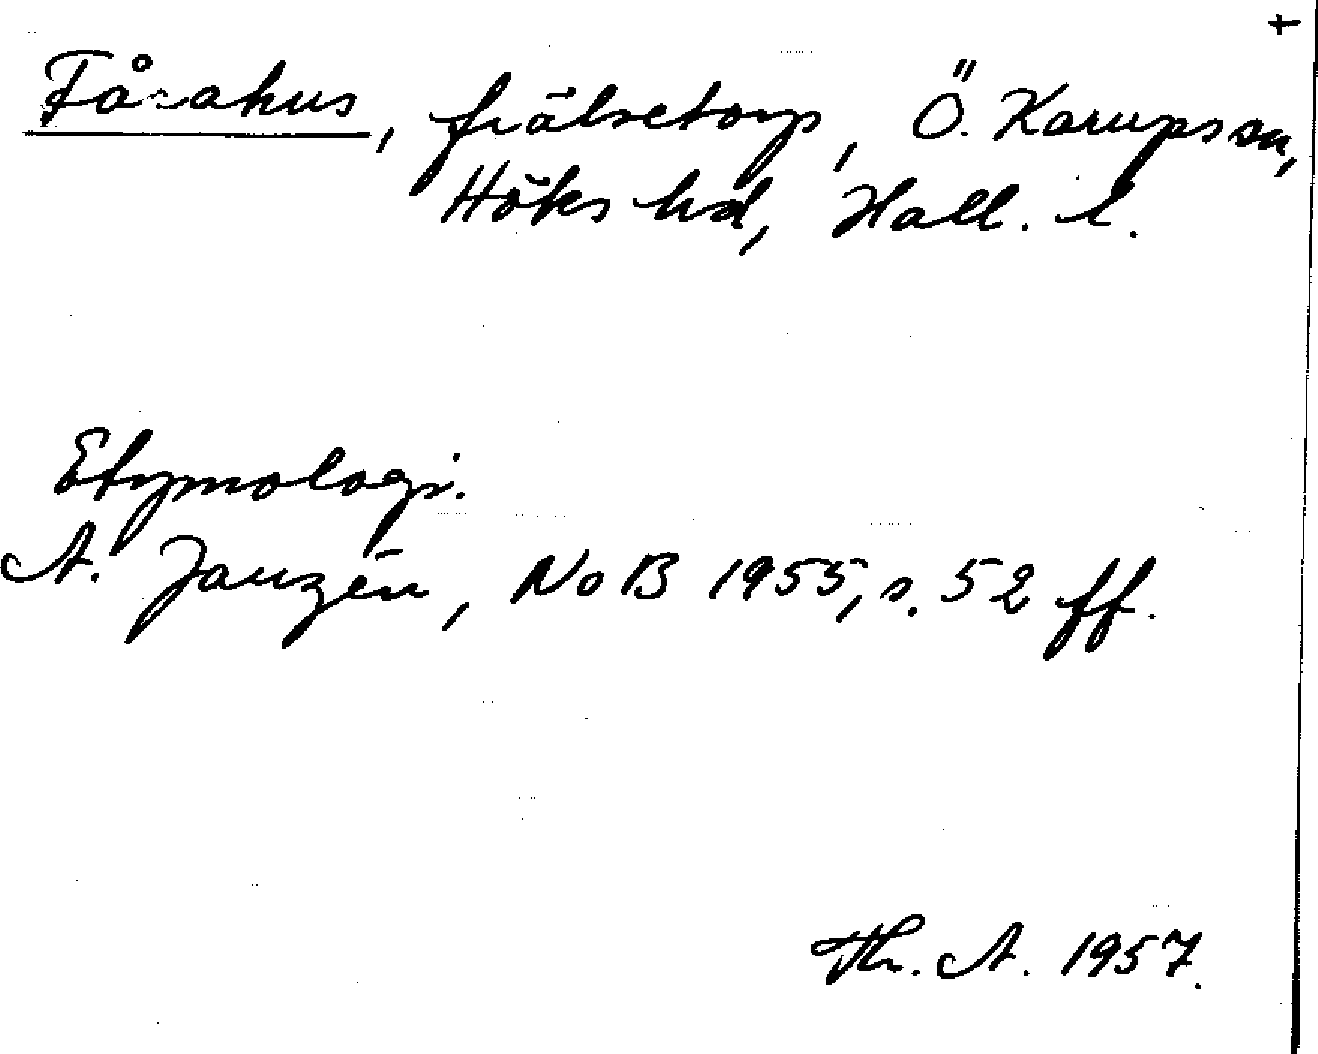 +
Fårahus, frälsetorp, Ö. Karups sn,
Höks hd, Hall. l.
Etymologi.
A. Janzén, NoB 1955, s. 52 ff.
Th. A. 1957.